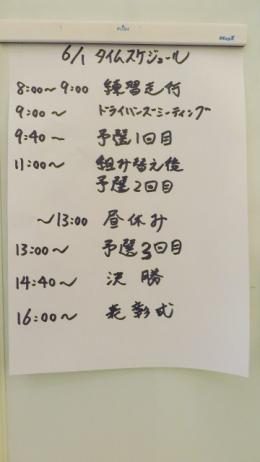 6/1 タイムスケジュール
8:00〜9:00 練習走行
9:00〜 ドライバーズミーティング
9:40〜 予選1回目
11:00〜 組み替え後
予選2回目
〜13:00 昼休み
13:00〜 予選3回目
14:40〜 決勝
16:00〜 表彰式